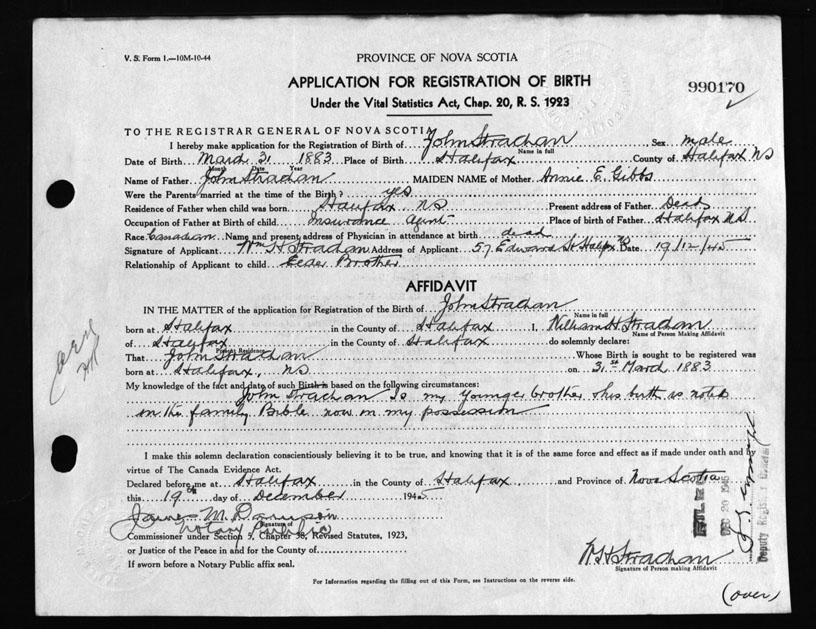 V. S. Form 1.—10M-10-44
PROVINCE OF NOVA SCOTIA
APPLICATION FOR REGISTRATION OF BIRTH
990170
Under the Vital Statistics Act, Chap. 20, R. S. 1923
TO THE REGISTRAR GENERAL OF NOVA SCOTIA
I hereby make application for the Registration of Birth of John Strachan Sex male
Name in full
Date of Birth March 31 1883 Place of Birth Halifax County of Halifax NS
Month Date Year
Name of Father John Strachan MAIDEN NAME of Mother Annie E. Gibbs
Were the Parents married at the time of the Birth? yes
Residence of Father when child was born Halifax NS Present address of Father Dead
Occupation of Father at Birth of child Insurance Agent Place of birth of Father Halifax NS
Race Canadian Name and present address of Physician in attendance at birth dead
Signature of Applicant Wm H Strachan Address of Applicant 57 Edward St Halifx NS Date 19/12/45
Relationship of Applicant to child Elder Brother
AFFIDAVIT
IN THE MATTER of the application for Registration of the Birth of John Strachan
Name in full
born at Halifax in the County of Halifax I, William H. Strachan
Name of Person Making Affidavit
of Halifax in the County of Halifax do solemnly declare:
Present Residence
That John Strachan Whose Birth is sought to be registered was
born at Halifax, NS on 31st March 1883
My knowledge of the fact and date of such Birth is based on the following circumstances:
John Strachan Is my younger brother his birth is noted
in the family Bible now in my possession
I make this solemn declaration conscientiously believing it to be true, and knowing that it is of the same force and effect as if made under oath and by
virtue of The Canada Evidence Act.
Declared before me at Halifax in the County of Halifax, and Province of Nova Scotia
this 19th day of December 1945
James M. Davison
Notary Public
Signature of
Commissioner under Section 5, Chapter 38, Revised Statutes, 1923,
or Justice of the Peace in and for the County of
If sworn before a Notary Public affix seal.
W H Strachan
Signature of Person making Affidavit
For Information regarding the filling out of this Form, see Instructions on the reverse side.
(over)
DEC 20 1945
Deputy Registrar General